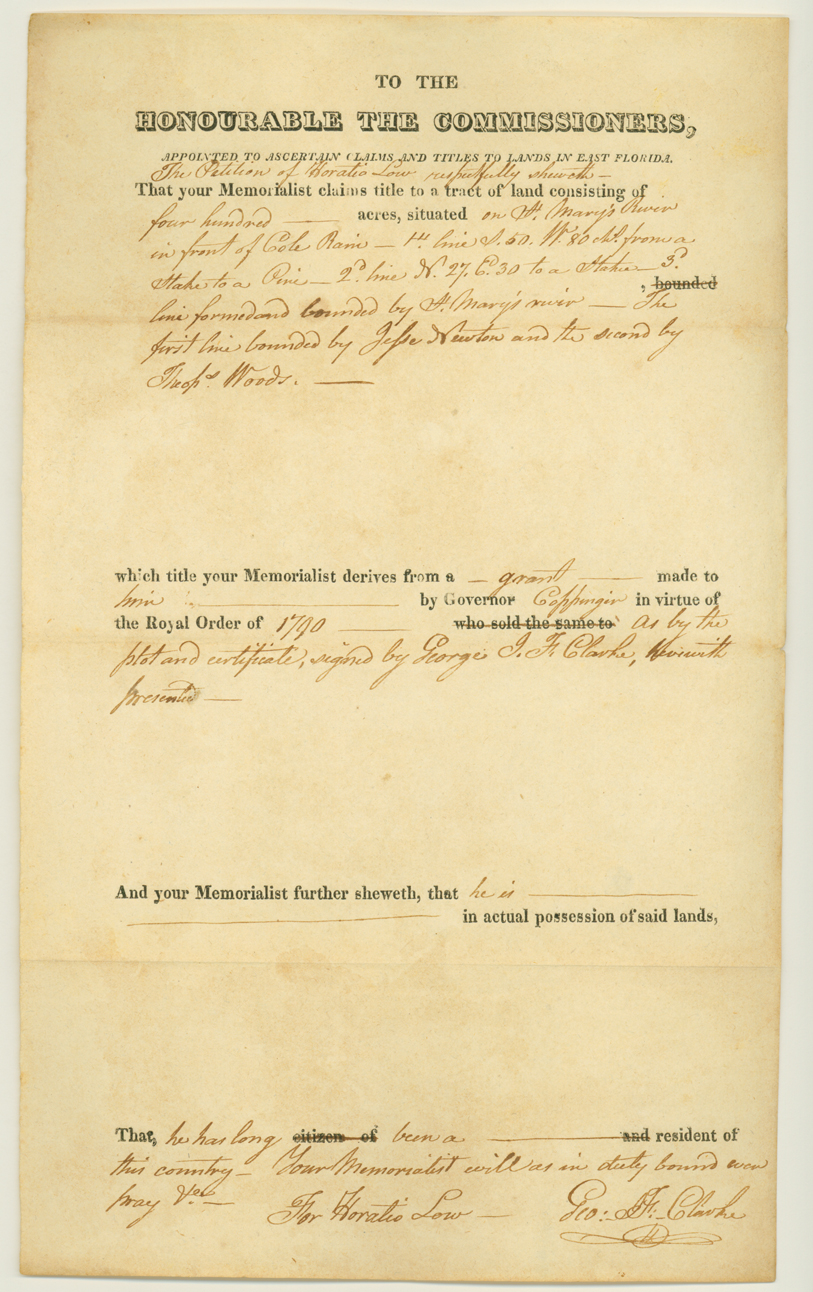 TO THE
HONOURABLE THE COMMISSIONERS,
APPOINTED TO ASCERTAIN CLAIMS AND TITLES TO LANDS IN EAST FLORIDA.
The Petition of Horatio Low respectfully sheweth —
That your Memorialist claims title to a tract of land consisting of
four hundred —— acres, situated on St. Mary's River
in front of Cole Rain — 1st line S. 50. W. 80 chs. from a
Stake to a Pine — 2d. line N. 27. E. 30 to a Stake — 3d.
, bounded
line formed and bounded by St. Mary's river — The
first line bounded by Jesse Newton and the second by
Thops. Woods. ——
which title your Memorialist derives from a — grant —— made to
him —— by Governor Coppinger in virtue of
the Royal Order of 1790 —— who sold the same to As by the
plot and certificate, signed by George J. F. Clarke, herewith
presented —
And your Memorialist further sheweth, that he is ——
—— in actual possession of said lands,
That, he has long citizen of been a —— and resident of
this country — Your Memorialist will as in duty bound ever
pray &c —
For Horatio Low — Geo: J. F. Clarke